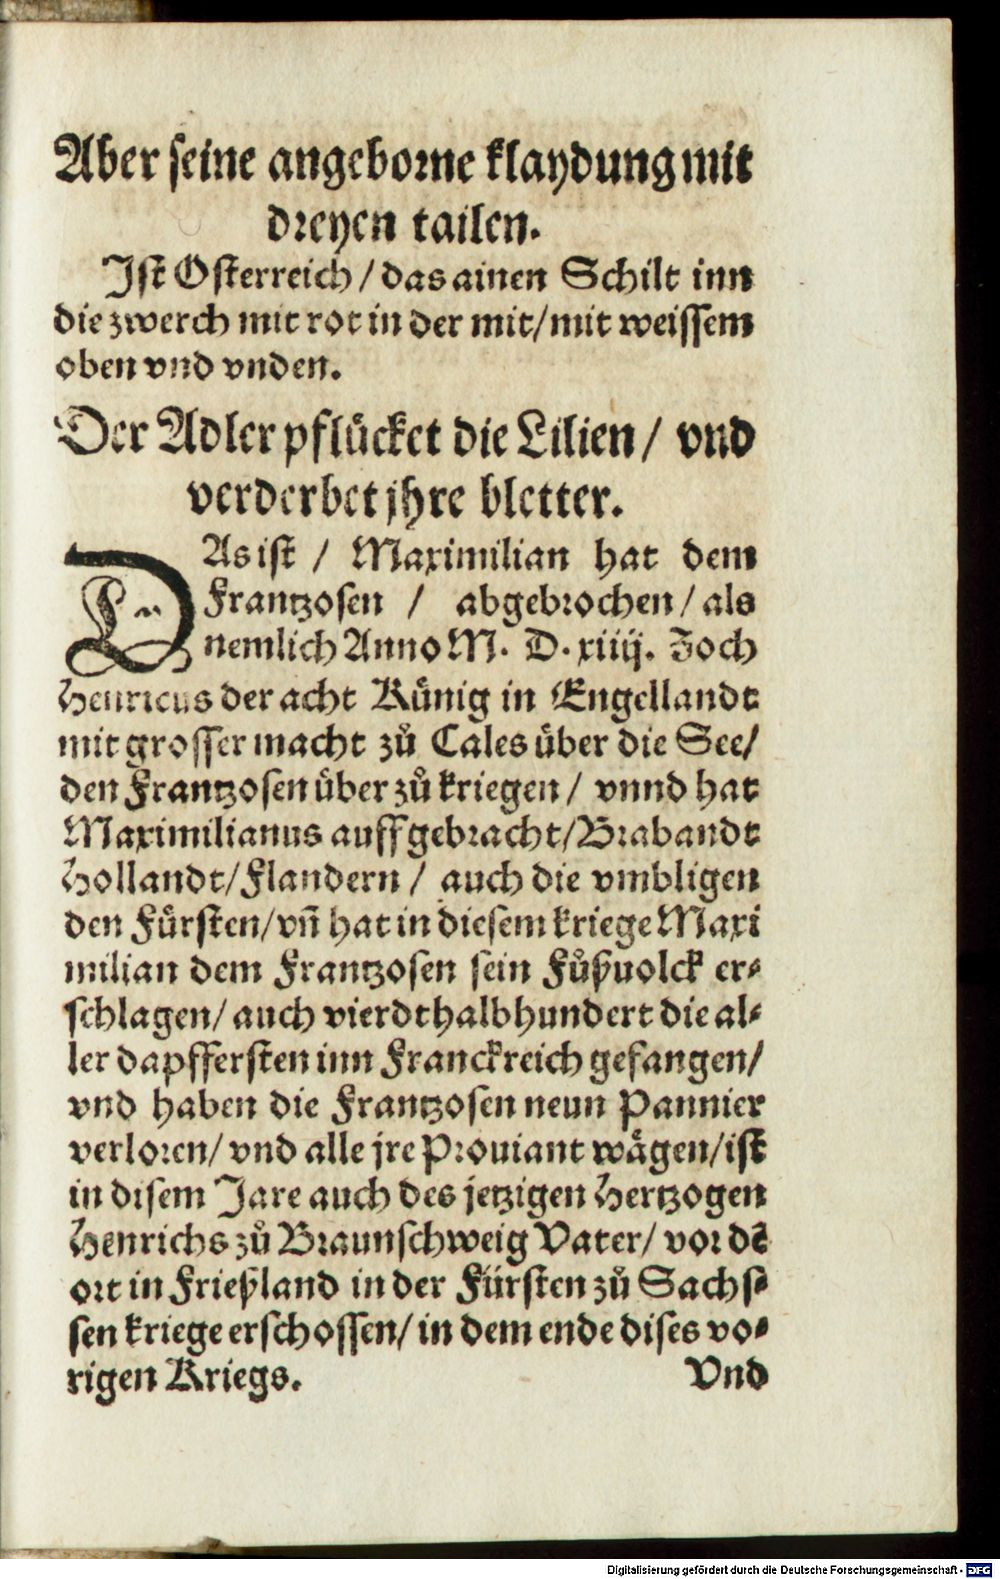 Aber seine angeborne klaydung mit
dreyen tailen.
Ist Osterreich / das ainen Schilt inn
die zwerch mit rot in der mit / mit weissem
oben vnd vnden.
Der Adler pflücket die Lilien / vnd
verderbet jhre bletter.
DAs ist / Maximilian hat dem
Frantzosen / abgebrochen / als
nemlich Anno M. D. xiiij. Zoch
Henricus der acht Künig in Engellandt
mit grosser macht zů Cales über die See /
den Frantzosen über zů kriegen / vnnd hat
Maximilianus auffgebracht / Brabandt
Hollandt / Flandern / auch die vmbligen
den Fürsten / vñ hat in diesem kriege Maxi
milian dem Frantzosen sein Fůßuolck er⸗
schlagen / auch vierdthalbhundert die al⸗
ler dapffersten inn Franckreich gefangen /
vnd haben die Frantzosen neun Pannier
verloren / vnd alle jre Prouiant wägen / ist
in disem Jare auch des jetzigen Hertzogen
Henrichs zů Braunschweig Vater / vor dē
ort in Frießland in der Fürsten zů Sachs⸗
sen kriege erschossen / in dem ende dises vo⸗
rigen Kriegs. Vnd
Digitalisierung gefördert durch die Deutsche Forschungsgemeinschaft - DFG